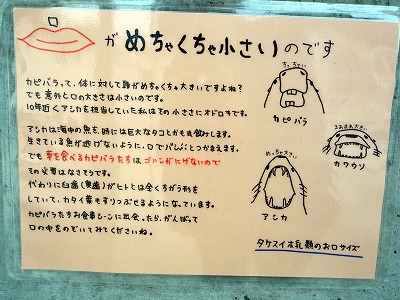 口がめちゃくちゃ小さいのです
カピバラって、体に対して顔がめちゃくちゃ大きいですよね?
でも意外と口の大きさは小さいのです。
10年近くアシカを担当していた私はその小ささにオドロキです。
アシカは海中の魚を、時には巨大なタコとかも丸飲みします。
生きている魚が逃げないように、口でバクッ!とつかまえます。
でも草を食べるカピバラたちはゴハンがにげないので
その必要はなさそうです。
代わりに臼歯(奥歯)がヒトとは全くちがう形を
していて、カタイ草もすりつぶせるようになっています。
カピバラたちお食事シーンに出会ったら、がんばって
口の中をのぞいてみてくださいね。
ちっちゃい
カピバラ
まあまあ大きい
カワウソ
めっちゃ大きい
アシカ
タケスイ ホ乳類のお口サイズ